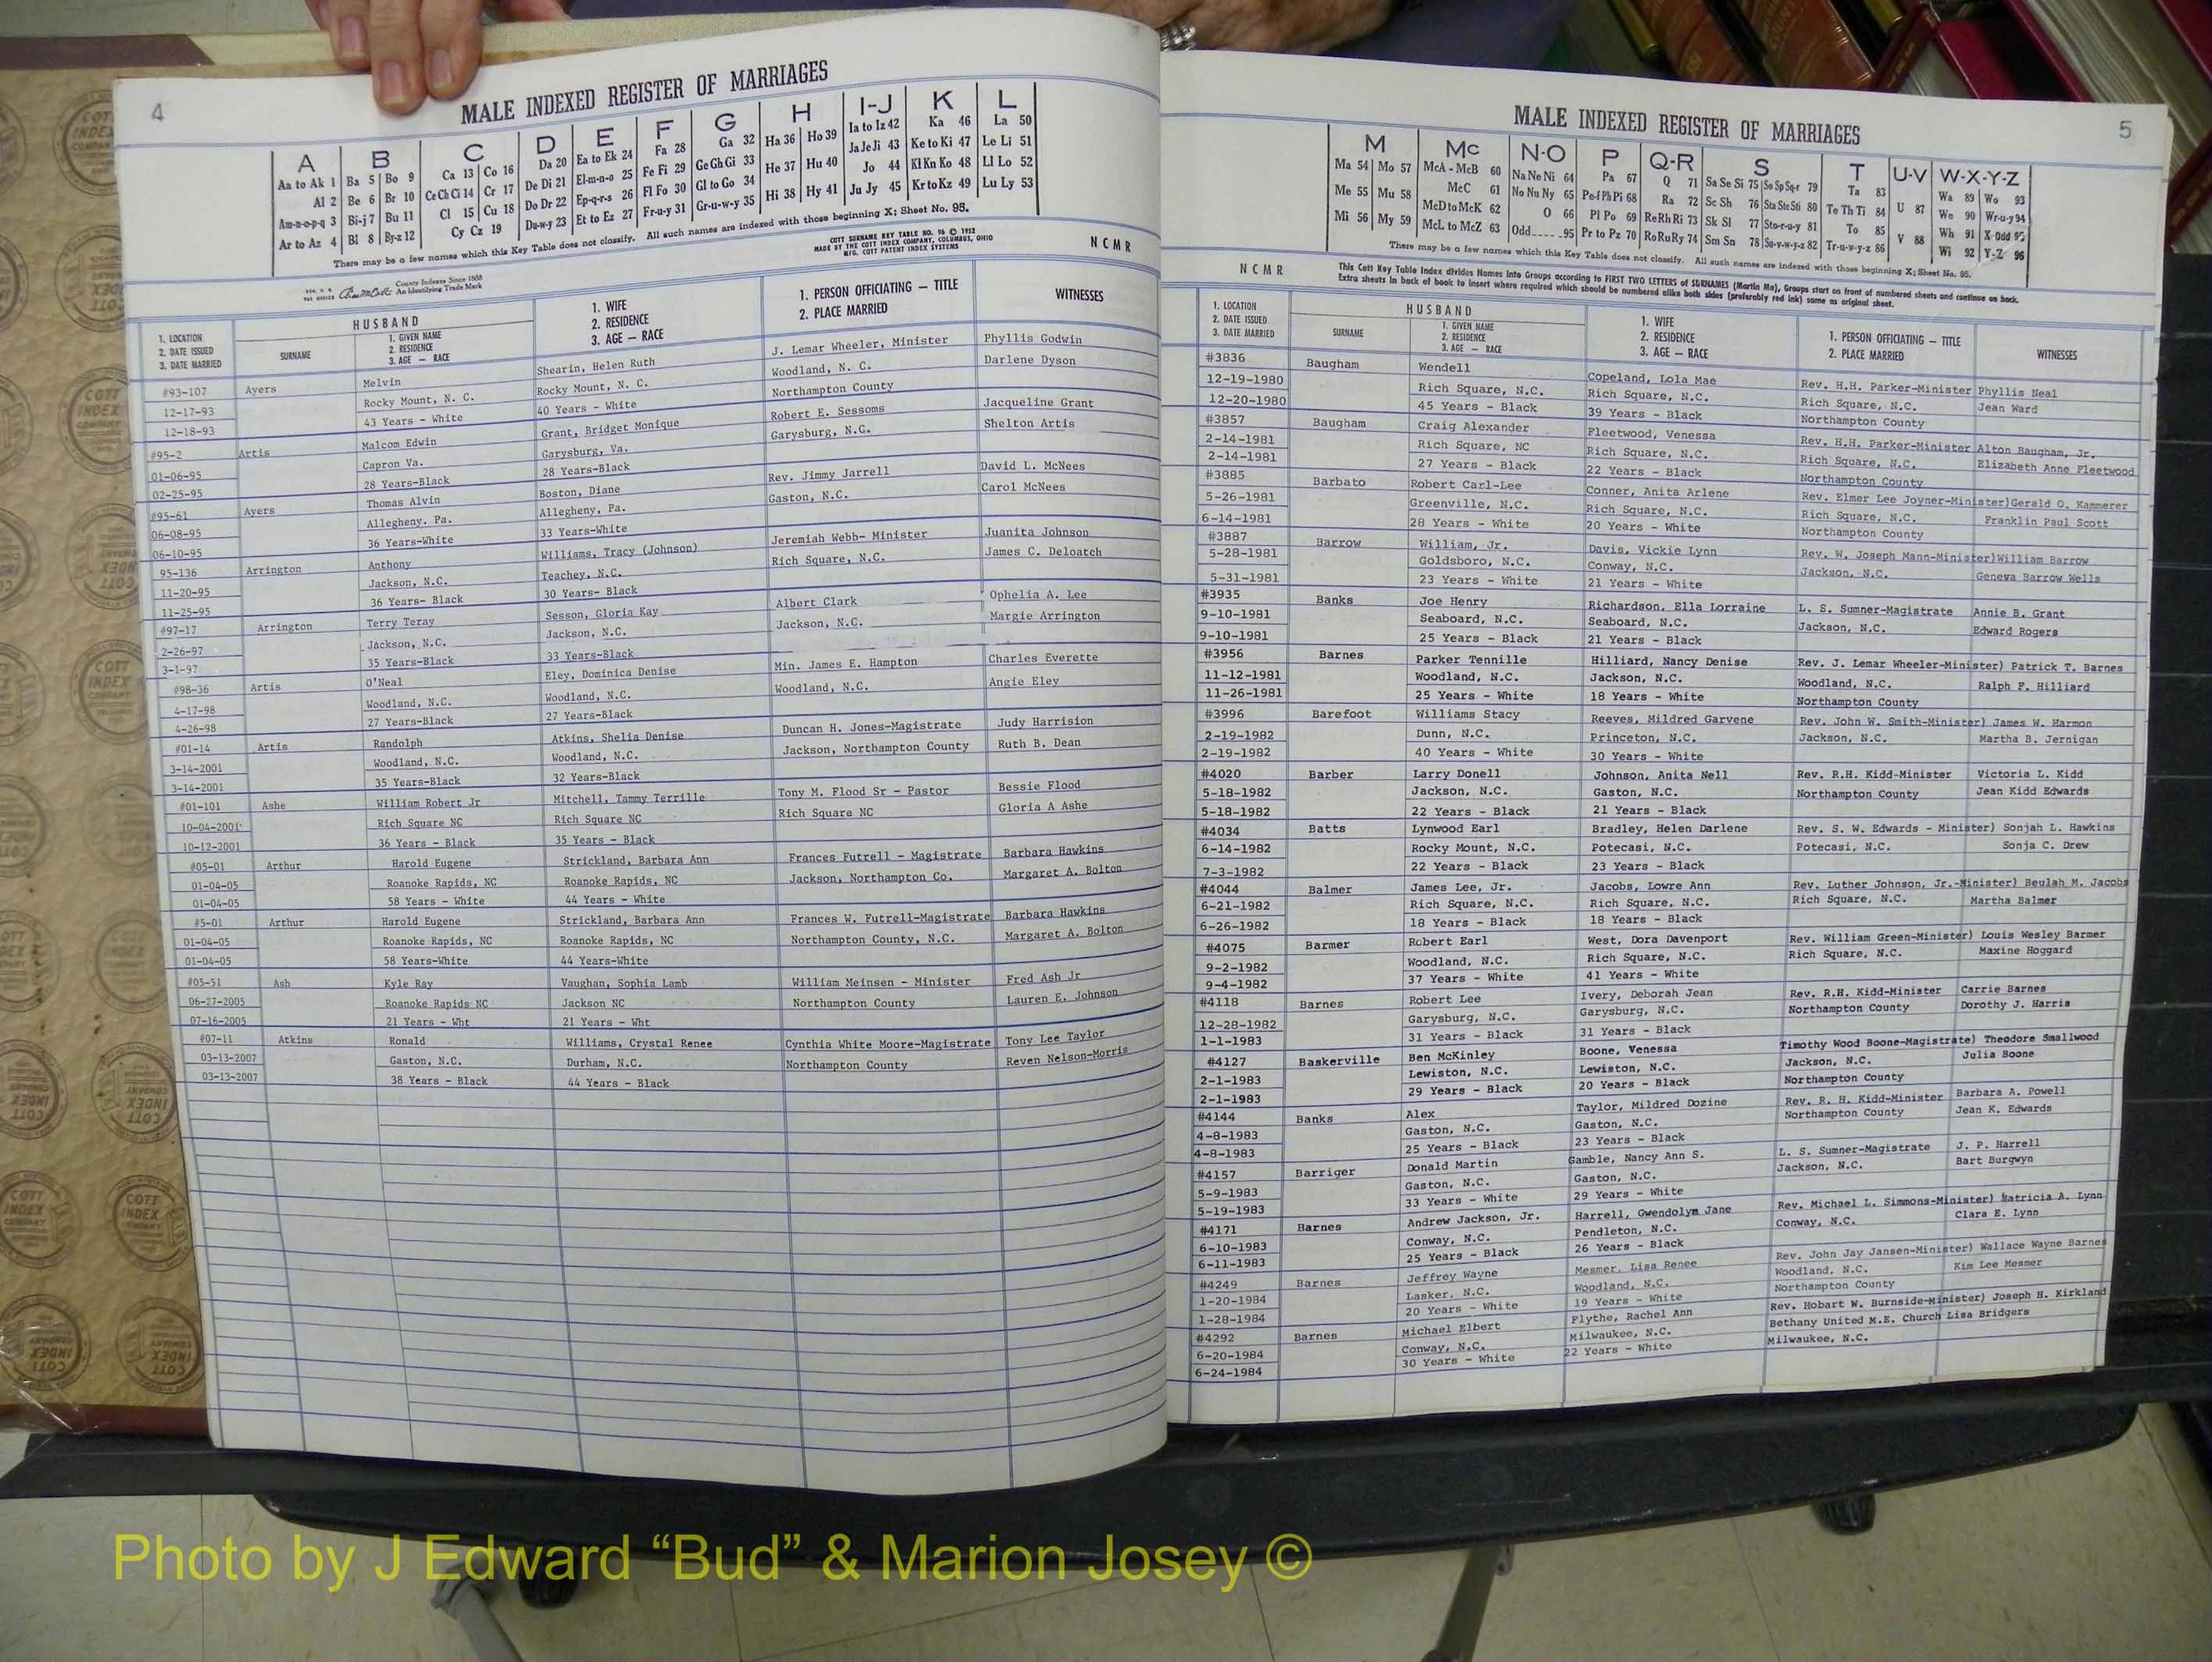 4
MALE INDEXED REGISTER OF MARRIAGES
A B C D E F G H I-J K L
Aa to Ak 1 Ba 5 Bo 9 Ca 13 Co 16 Da 20 Ea to Ek 24 Fa 28 Ga 32 Ha 36 Ho 39 Ia to Iz 42 Ka 46 La 50
Al 2 Be 6 Br 10 Ce Ch Ci 14 Cr 17 De Di 21 El-m-n-o 25 Fe Fi 29 Ge Gh Gi 33 He 37 Hu 40 Ja Je Ji 43 Ke to Ki 47 Le Li 51
Am-n-o-p-q 3 Bi-j 7 Bu 11 Cl 15 Cu 18 Do Dr 22 Ep-q-r-s 26 Fl Fo 30 Gl to Go 34 Hi 38 Hy 41 Jo 44 Kl Kn Ko 48 Ll Lo 52
Ar to Az 4 Bl 8 By-z 12 Cy Cz 19 Du-w-y 23 Et to Ez 27 Fr-u-y 31 Gr-u-w-y 35 Ju Jy 45 Kr to Kz 49 Lu Ly 53
There may be a few names which this Key Table does not classify. All such names are indexed with those beginning X; Sheet No. 95.
County Indexes Since 1888
An Identifying Trade Mark
COTT SURNAME KEY TABLE NO. 96 © 1952
MADE BY THE COTT INDEX COMPANY, COLUMBUS, OHIO
MFG. COTT PATENT INDEX SYSTEMS
NCMR
1. LOCATION
2. DATE ISSUED
3. DATE MARRIED
HUSBAND
SURNAME
1. GIVEN NAME
2. RESIDENCE
3. AGE — RACE
1. WIFE
2. RESIDENCE
3. AGE — RACE
1. PERSON OFFICIATING — TITLE
2. PLACE MARRIED
WITNESSES
#93-107 Ayers Melvin Shearin, Helen Ruth J. Lemar Wheeler, Minister Phyllis Godwin
12-17-93 Rocky Mount, N. C. Rocky Mount, N. C. Woodland, N. C. Darlene Dyson
12-18-93 43 Years - White 40 Years - White Northampton County
#95-2 Artis Malcom Edwin Grant, Bridget Monique Robert E. Sessoms Jacqueline Grant
01-06-95 Capron Va. Garysburg, Va. Garysburg, N.C. Shelton Artis
02-25-95 28 Years-Black 28 Years-Black
#95-61 Ayers Thomas Alvin Boston, Diane Rev. Jimmy Jarrell David L. McNees
06-08-95 Allegheny. Pa. Allegheny, Pa. Gaston, N.C. Carol McNees
06-10-95 36 Years-White 33 Years-White
95-136 Arrington Anthony Williams, Tracy (Johnson) Jeremiah Webb- Minister Juanita Johnson
11-20-95 Jackson, N.C. Teachey, N.C. Rich Square, N.C. James C. Deloatch
11-25-95 36 Years- Black 30 Years- Black
#97-17 Arrington Terry Teray Sesson, Gloria Kay Albert Clark Ophelia A. Lee
2-26-97 Jackson, N.C. Jackson, N.C. Jackson, N.C. Margie Arrington
3-1-97 35 Years-Black 33 Years-Black
#98-36 Artis O'Neal Eley, Dominica Denise Min. James E. Hampton Charles Everette
4-17-98 Woodland, N.C. Woodland, N.C. Woodland, N.C. Angie Eley
4-26-98 27 Years-Black 27 Years-Black
#01-14 Artis Randolph Atkins, Shelia Denise Duncan H. Jones-Magistrate Judy Harrision
3-14-2001 Woodland, N.C. Woodland, N.C. Jackson, Northampton County Ruth B. Dean
3-14-2001 35 Years-Black 32 Years-Black
#01-101 Ashe William Robert Jr Mitchell, Tammy Terrille Tony M. Flood Sr - Pastor Bessie Flood
10-04-2001 Rich Square NC Rich Square NC Rich Square NC Gloria A Ashe
10-12-2001 36 Years - Black 35 Years - Black
#05-01 Arthur Harold Eugene Strickland, Barbara Ann Frances Futrell - Magistrate Barbara Hawkins
01-04-05 Roanoke Rapids, NC Roanoke Rapids, NC Jackson, Northampton Co. Margaret A. Bolton
01-04-05 58 Years - White 44 Years - White
#5-01 Arthur Harold Eugene Strickland, Barbara Ann Frances W. Futrell-Magistrate Barbara Hawkins
01-04-05 Roanoke Rapids, NC Roanoke Rapids, NC Northampton County, N.C. Margaret A. Bolton
01-04-05 58 Years-White 44 Years-White
#05-51 Ash Kyle Ray Vaughan, Sophia Lamb William Meinsen - Minister Fred Ash Jr
06-27-2005 Roanoke Rapids NC Jackson NC Northampton County Lauren E. Johnson
07-16-2005 21 Years - Wht 21 Years - Wht
#07-11 Atkins Ronald Williams, Crystal Renee Cynthia White Moore-Magistrate Tony Lee Taylor
03-13-2007 Gaston, N.C. Durham, N.C. Northampton County Reven Nelson-Morris
03-13-2007 38 Years - Black 44 Years - Black
MALE INDEXED REGISTER OF MARRIAGES
5
M Mc N-O P Q-R S T U-V W-X-Y-Z
Ma 54 Mo 57 McA - McB 60 Na Ne Ni 64 Pa 67 Q 71 Sa Se Si 75 So Sp Sq-r 79 Ta 83 U 87 Wa 89 Wo 93
Me 55 Mu 58 McC 61 No Nu Ny 65 Pe-f Ph Pi 68 Ra 72 Sc Sh 76 Sta Ste Sti 80 Te Th Ti 84 V 88 We 90 Wr-u-y 94
Mi 56 My 59 McD to McK 62 O 66 Pl Po 69 Re Rh Ri 73 Sk Sl 77 Sto-r-u-y 81 To 85 Wh 91 X-Odd 95
McL to McZ 63 Odd-----95 Pr to Pz 70 Ro Ru Ry 74 Sm Sn 78 Su-v-w-y-z 82 Tr-u-w-y-z 86 Wi 92 Y-Z 96
There may be a few names which this Key Table does not classify. All such names are indexed with those beginning X; Sheet No. 95.
NCMR
This Cott Key Table Index divides Names into Groups according to FIRST TWO LETTERS of SURNAMES (Martin Ma), Groups start on front of numbered sheets and continue on back.
Extra sheets in back of book to insert where required which should be numbered alike both sides (preferably red ink) same as original sheet.
1. LOCATION
2. DATE ISSUED
3. DATE MARRIED
HUSBAND
SURNAME
1. GIVEN NAME
2. RESIDENCE
3. AGE — RACE
1. WIFE
2. RESIDENCE
3. AGE — RACE
1. PERSON OFFICIATING — TITLE
2. PLACE MARRIED
WITNESSES
#3836 Baugham Wendell Copeland, Lola Mae Rev. H.H. Parker-Minister Phyllis Neal
12-19-1980 Rich Square, N.C. Rich Square, N.C. Rich Square, N.C. Jean Ward
12-20-1980 45 Years - Black 39 Years - Black Northampton County
#3857 Baugham Craig Alexander Fleetwood, Venessa Rev. H.H. Parker-Minister Alton Baugham, Jr.
2-14-1981 Rich Square, NC Rich Square, N.C. Rich Square, N.C. Elizabeth Anne Fleetwood
2-14-1981 27 Years - Black 22 Years - Black Northampton County
#3885 Barbato Robert Carl-Lee Conner, Anita Arlene Rev. Elmer Lee Joyner-Minister)Gerald O. Kammerer
5-26-1981 Greenville, N.C. Rich Square, N.C. Rich Square, N.C. Franklin Paul Scott
6-14-1981 28 Years - White 20 Years - White Northampton County
#3887 Barrow William, Jr. Davis, Vickie Lynn Rev. W. Joseph Mann-Minister)William Barrow
5-28-1981 Goldsboro, N.C. Conway, N.C. Jackson, N.C. Geneva Barrow Wells
5-31-1981 23 Years - White 21 Years - White
#3935 Banks Joe Henry Richardson, Ella Lorraine L. S. Sumner-Magistrate Annie B. Grant
9-10-1981 Seaboard, N.C. Seaboard, N.C. Jackson, N.C. Edward Rogers
9-10-1981 25 Years - Black 21 Years - Black
#3956 Barnes Parker Tennille Hilliard, Nancy Denise Rev. J. Lemar Wheeler-Minister) Patrick T. Barnes
11-12-1981 Woodland, N.C. Jackson, N.C. Woodland, N.C. Ralph F. Hilliard
11-26-1981 25 Years - White 18 Years - White Northampton County
#3996 Barefoot Williams Stacy Reeves, Mildred Garvene Rev. John W. Smith-Minister) James W. Harmon
2-19-1982 Dunn, N.C. Princeton, N.C. Jackson, N.C. Martha B. Jernigan
2-19-1982 40 Years - White 30 Years - White
#4020 Barber Larry Donell Johnson, Anita Nell Rev. R.H. Kidd-Minister Victoria L. Kidd
5-18-1982 Jackson, N.C. Gaston, N.C. Northampton County Jean Kidd Edwards
5-18-1982 22 Years - Black 21 Years - Black
#4034 Batts Lynwood Earl Bradley, Helen Darlene Rev. S. W. Edwards - Minister) Sonjah L. Hawkins
6-14-1982 Rocky Mount, N.C. Potecasi, N.C. Potecasi, N.C. Sonja C. Drew
7-3-1982 22 Years - Black 23 Years - Black
#4044 Balmer James Lee, Jr. Jacobs, Lowre Ann Rev. Luther Johnson, Jr.-Minister) Beulah M. Jacobs
6-21-1982 Rich Square, N.C. Rich Square, N.C. Rich Square, N.C. Martha Balmer
6-26-1982 18 Years - Black 18 Years - Black
#4075 Barmer Robert Earl West, Dora Davenport Rev. William Green-Minister) Louis Wesley Barmer
9-2-1982 Woodland, N.C. Rich Square, N.C. Rich Square, N.C. Maxine Hoggard
9-4-1982 37 Years - White 41 Years - White
#4118 Barnes Robert Lee Ivery, Deborah Jean Rev. R.H. Kidd-Minister Carrie Barnes
12-28-1982 Garysburg, N.C. Garysburg, N.C. Northampton County Dorothy J. Harris
1-1-1983 31 Years - Black 31 Years - Black
#4127 Baskerville Ben McKinley Boone, Venessa Timothy Wood Boone-Magistrate) Theodore Smallwood
2-1-1983 Lewiston, N.C. Lewiston, N.C. Jackson, N.C. Julia Boone
2-1-1983 29 Years - Black 20 Years - Black Northampton County
#4144 Banks Alex Taylor, Mildred Dozine Rev. R. H. Kidd-Minister Barbara A. Powell
4-8-1983 Gaston, N.C. Gaston, N.C. Northampton County Jean K. Edwards
4-8-1983 25 Years - Black 23 Years - Black
#4157 Barriger Donald Martin Gamble, Nancy Ann S. L. S. Sumner-Magistrate J. P. Harrell
5-9-1983 Gaston, N.C. Gaston, N.C. Jackson, N.C. Bart Burgwyn
5-19-1983 33 Years - White 29 Years - White
#4171 Barnes Andrew Jackson, Jr. Harrell, Gwendolyn Jane Rev. Michael L. Simmons-Minister) Patricia A. Lynn
6-10-1983 Conway, N.C. Pendleton, N.C. Conway, N.C. Clara E. Lynn
6-11-1983 25 Years - Black 26 Years - Black
#4249 Barnes Jeffrey Wayne Mesmer, Lisa Renee Rev. John Jay Jansen-Minister) Wallace Wayne Barnes
1-20-1984 Lasker, N.C. Woodland, N.C. Woodland, N.C. Kim Lee Mesmer
1-28-1984 20 Years - White 19 Years - White Northampton County
#4292 Barnes Michael Elbert Flythe, Rachel Ann Rev. Hobart W. Burnside-Minister) Joseph H. Kirkland
6-20-1984 Conway, N.C. Milwaukee, N.C. Bethany United M.E. Church Lisa Bridgers
6-24-1984 30 Years - White 22 Years - White Milwaukee, N.C.
Photo by J Edward “Bud” & Marion Josey ©